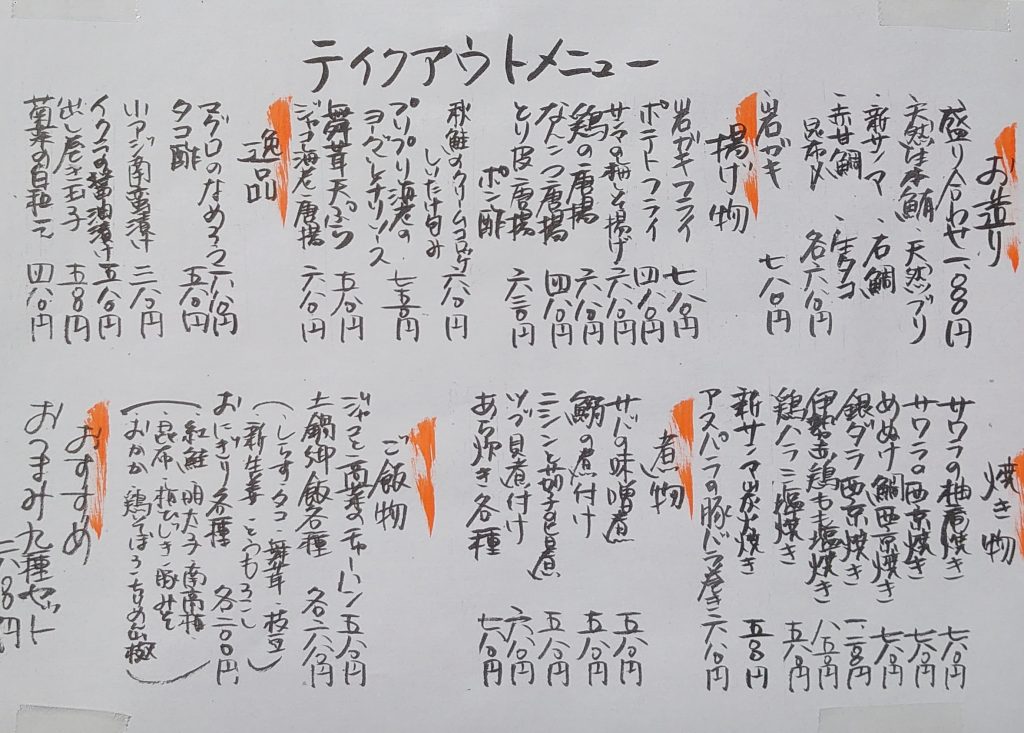 ティクアウトメニュー
お造り
盛り合わせ 一、八〇〇円
・天然生本鮪 ・天然ブリ
・新サンマ ・石鯛
・赤甘鯛 ・生タコ
昆布〆 各六八〇円
・岩ガキ 七八〇円
揚げ物
岩ガキフライ 七八〇円
ポテトフライ 四八〇円
サンマの梅しそ揚げ 六八〇円
鶏の唐揚 六八〇円
なんこつ唐揚 四八〇円
とり皮唐揚 六三〇円
ポン酢
秋鮭のクリームコロッケ 六八〇円
しいたけ包み
プリプリ海老の 七五〇円
ヨーグルトチリソース
舞茸天ぷら 五八〇円
ジャンボ海老唐揚 六八〇円
逸品
マグロのなめろう 六八〇円
タコ酢 五八〇円
小アジ南蛮漬け 三八〇円
イクラの醤油漬け 五八〇円
出し巻き玉子 五八〇円
菊菜の白和え 四八〇円
焼き物
サワラの柚庵焼き 七八〇円
サワラの西京焼き 七八〇円
めぬけ鯛西京焼き 七八〇円
銀ダラ西京焼き 一、二八〇円
伊勢赤鶏もも塩焼き 八五〇円
鶏ハラミ塩焼き 五八〇円
新サンマ炭火焼き 五八〇円
アスパラの豚バラ巻き 六八〇円
煮物
サバの味噌煮 五八〇円
鰤の煮付け 五八〇円
ニシンと茄子の旨煮 五八〇円
ツブ貝煮付け 六八〇円
あら炊き各種 七八〇円
ご飯物
ジャコと高菜のチャーハン 五八〇円
土鍋御飯各種 各六八〇円
(・しらすタコ ・舞茸 ・枝豆
・新生姜 ・とうもろこし)
おにぎり各種 各二〇〇円
(・紅鮭 ・明太子 ・南高梅
・昆布 ・梅ひじき ・豚みそ
・おかか ・鶏そぼろ ・ちりめん山椒)
おすすめ
おつまみ九種セット